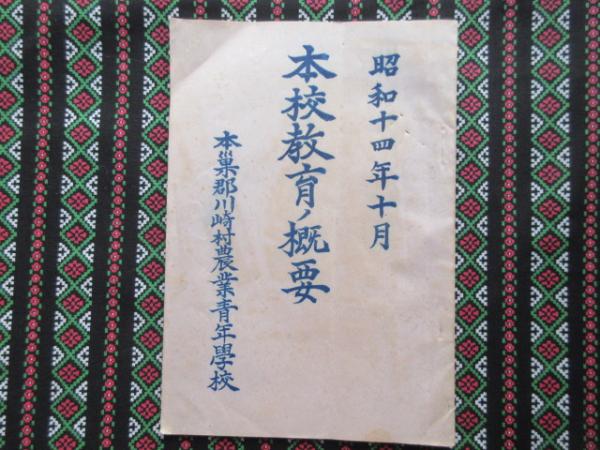 昭和十四年十月
本校教育ノ概要
本巣郡川崎村農業青年學校